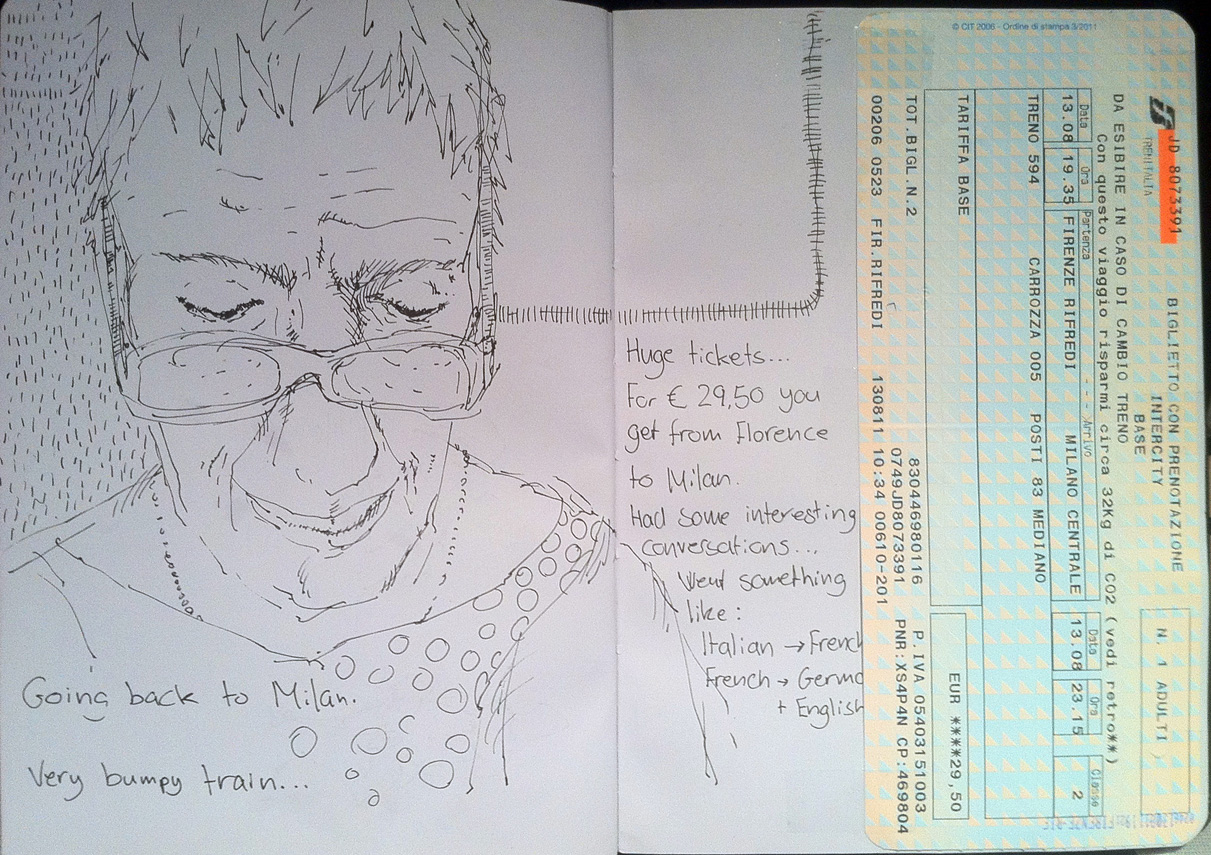 Going back to Milan.
Very bumpy train...
Huge tickets...
For € 29,50 you
get from Florence
to Milan.
Had some interesting
conversations...
Went something
like:
Italian → French
French → Germa
+ English
© CIT 2006 - Ordine di stampa 3/2011
JD 8073391
TRENITALIA
BIGLIETTO CON PRENOTAZIONE
INTERCITY
BASE
N. 1 ADULTI
DA ESIBIRE IN CASO DI CAMBIO TRENO
Con questo viaggio risparmi circa 32Kg di CO2 (vedi retro**)
Data Ora Partenza Arrivo Data Ora Classe
13.08 19.35 FIRENZE RIFREDI MILANO CENTRALE 13.08 23.15 2
TRENO 594 CARROZZA 005 POSTI 83 MEDIANO
TARIFFA BASE
EUR ****29,50
TOT.BIGL.N.2
83044698​0116 P.IVA 05403151003
0749JD8073391 PNR:XS4P4N CP:469804
00206 0523 FIR.RIFREDI 130811 10:34 00610-201